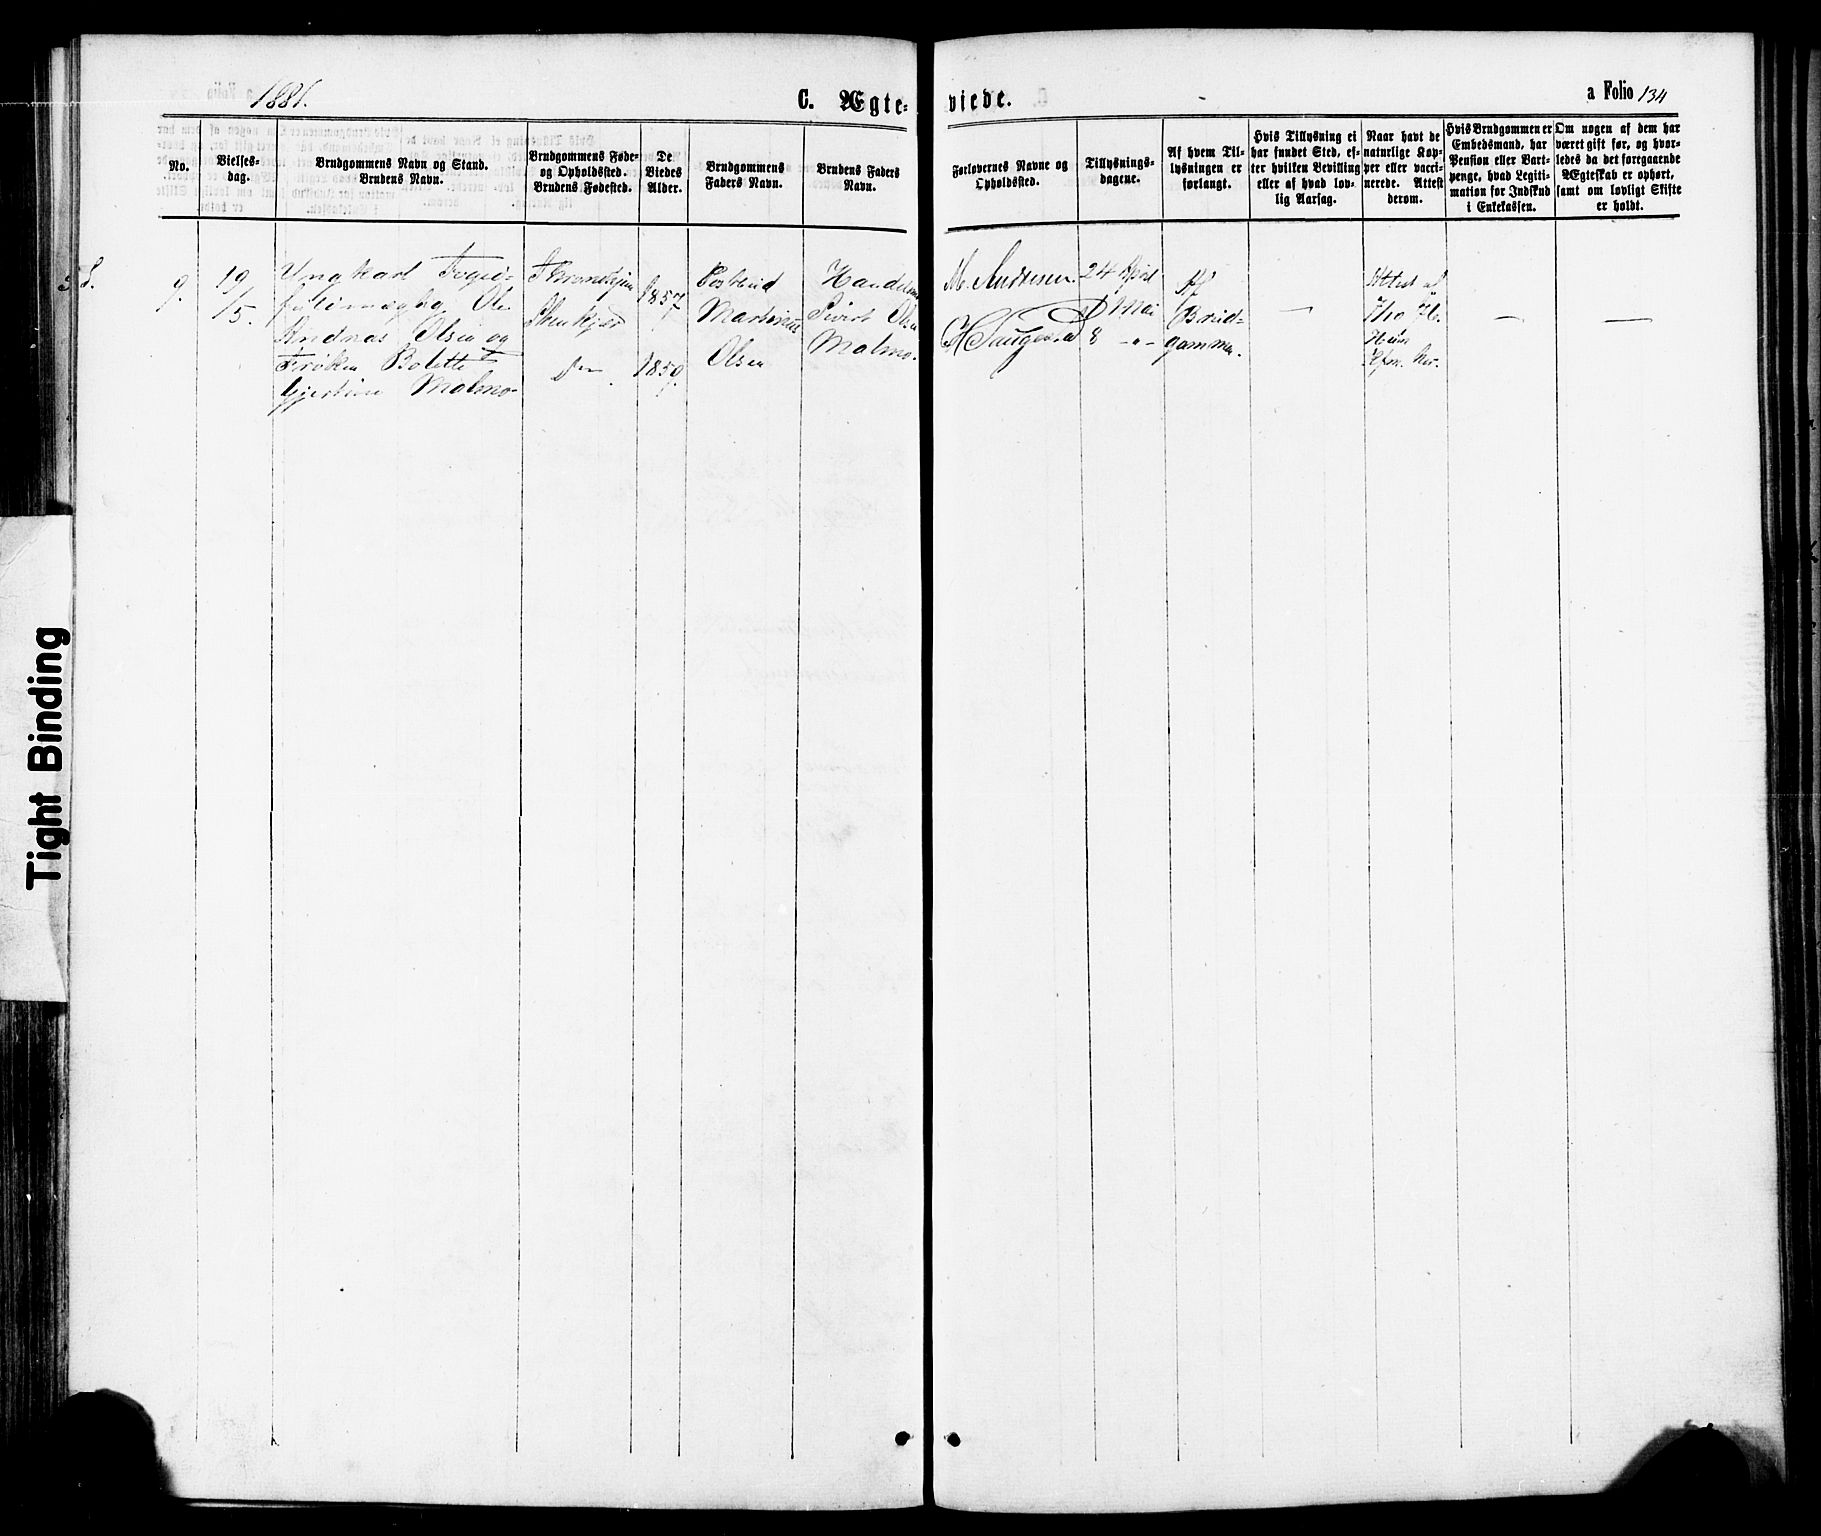 1881.
C. Ægte-
viede.
a Folio 134
No.
Vielses-
dag.
Brudgommens Navn og Stand.
Brudens Navn.
Brudgommens Føde-
og Opholdssted.
Brudens Fødested.
De
Viedes
Alder.
Brudgommens
Faders Navn.
Brudens Faders
Navn.
Forlovernes Navne og
Opholdssted.
Tillysnings-
dagene.
Af hvem Til-
lysningen er
forlangt.
Hvis Tillysning ei
har fundet Sted, ef-
ter hvilken Bevilling
eller af hvad lov-
lig Aarsag.
Naar havt de
naturlige Kop-
per eller vacci-
nerede. Attest
derom.
Hvis Brudgommen er
Embedsmand, har
Pension eller Vart-
penge, hvad Legiti-
mation for Indskud
i Enkekassen.
Om nogen af dem har
været gift før, og hvor-
ledes da det foregaaende
Ægteskab er ophørt,
samt om lovligt Skifte
er holdt.
9.
19/5.
Ungkarl Foged-
fuldmægtig Ole
Andreas Olsen og
Frøken Bolette
Gjertine Malmo
Throndhjem
Stenkjær
Do
1857
1859.
Postbud
Martinus
Olsen
Handelsm.
Sivert Olsen
Malmo.
M. Andresen.
H Haugerud
24 April
1 Mai
8 -"-
Af
Brud-
gommen.
—
Attest af
7/10 76.
—
—
Tight Binding